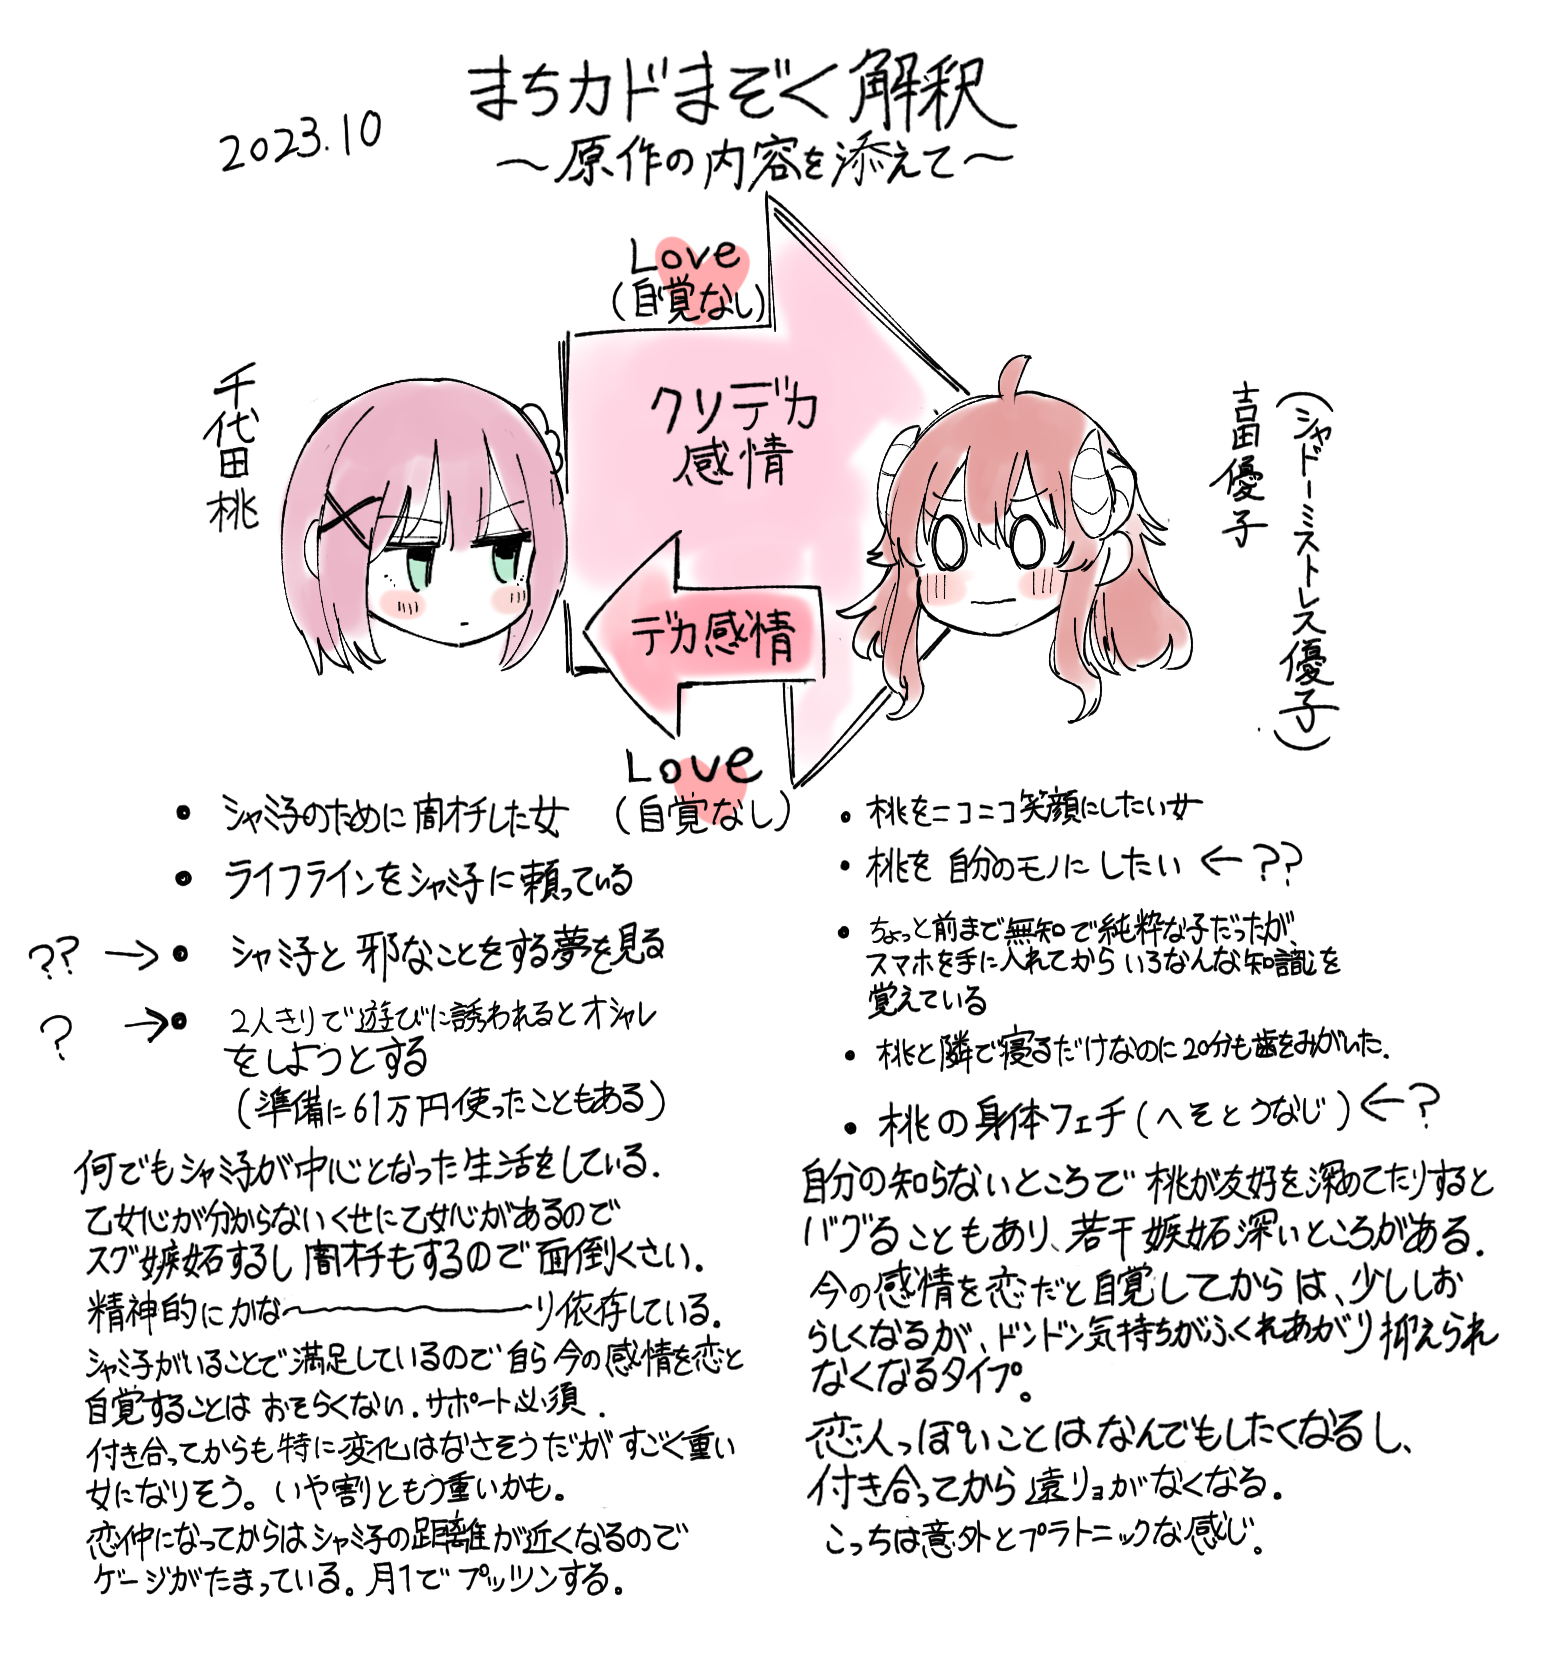 2023.10
まちカドまぞく解釈
～原作の内容を添えて～
Love
(自覚なし)
クソデカ
感情
デカ感情
Love
(自覚なし)
千代田桃
吉田優子
(シャドーミストレス優子)
• シャミ子のために闇オチした女
• ライフラインをシャミ子に頼っている
?? → • シャミ子と邪なことをする夢を見る
? → • 2人きりで遊びに誘われるとオシャレ
をしようとする
(準備に61万円使ったこともある)
何でもシャミ子が中心となった生活をしている.
乙女心が分からないくせに乙女心があるので
スグ嫉妬するし闇オチもするので面倒くさい.
精神的にかな〜〜〜〜〜り依存している.
シャミ子がいることで満足しているので自ら今の感情を恋と
自覚することはおそらくない.サポート必須.
付き合ってからも特に変化はなさそうだがすごく重い
女になりそう。いや割ともう重いかも。
恋仲になってからはシャミ子の距離が近くなるので
ゲージがたまっている。月1でプッツンする。
• 桃をニコニコ笑顔にしたい女
• 桃を自分のモノにしたい ← ??
• ちょっと前まで無知で純粋な子だったが、
スマホを手に入れてからいろなんな知識を
覚えている
• 桃と隣で寝るだけなのに20分も歯をみがいた.
• 桃の身体フェチ(へそとうなじ) ← ?
自分の知らないところで桃が友好を深めてたりすると
バグることもあり、若干嫉妬深いところがある.
今の感情を恋だと自覚してからは、少ししお
らしくなるが、ドンドン気持ちがふくれあがり抑えられ
なくなるタイプ。
恋人っぽいことはなんでもしたくなるし、
付き合ってから遠リョがなくなる.
こっちは意外とプラトニックな感じ。